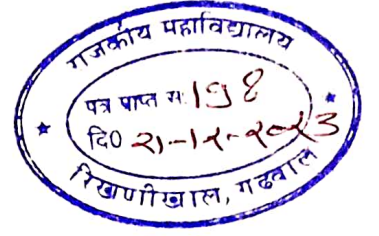 राजकीय महाविद्यालय
पत्र प्राप्त स. 198
दि0 २1-1२-२०२3
रिखणीखाल, गढवाल